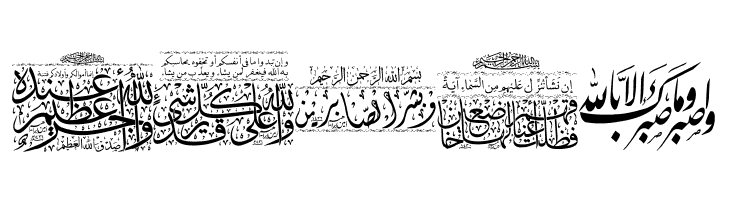 واصبر وما صبرك الا بالله
إن نشأ ننزل عليهم من السماء آية
فظلت أعناقهم لها خاضعين
بسم الله الرحمن الرحيم
وبشر الصابرين
وإن تبدوا ما في أنفسكم أو تخفوه يحاسبكم
به الله فيغفر لمن يشاء ويعذب من يشاء
والله على كل شيء قدير
إنما أموالكم وأولادكم فتنة
والله عنده أجر عظيم
صدق الله العظيم